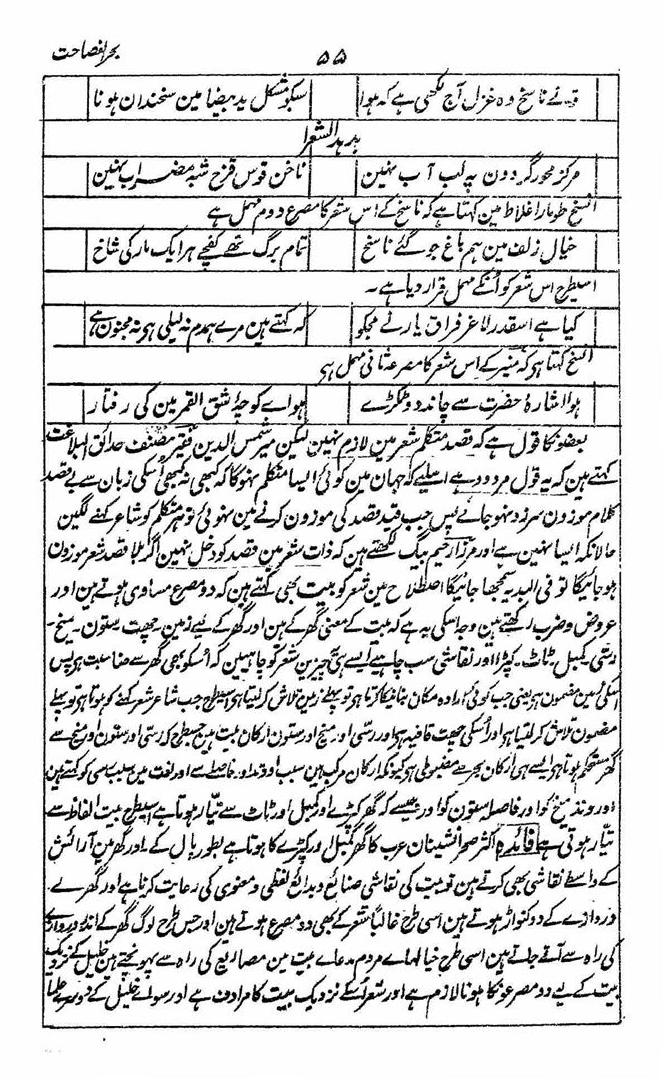 بحر الفصاحت
۵۵
تو نے ناسخ وہ غزل آج لکھی ہے کہ ہوا
سبکو مشکل ید بیضا مین سخندان ہونا
مرکز محور گردون بہ لب آب نہین
ناخن قوس قزح شبہ مضراب نہین
طومار اغلاط مین کہتا ہے کہ ناسخ کے اس شعر کا مصرع دوم مہمل ہے
خیال زلف مین ہم باغ جو گئے ناسخ
تمام برگ تھے کفچے ہر ایک مار کی شاخ
اسیطرح اس شعر کو اُنکے مہمل قرار دیا ہے۔
کیا ہے اسقدر لاغر فراق یار نے مجکو
کہ کہتے ہین مرے ہمدم نہ لیلی ہی نہ مجنون ہے
کہتا ہی کہ منیر کے اس شعر کا مصرعۂ ثانی مہمل ہی
ہوا اشارۂ حضرت سے چاند دو ٹکڑے
ہو اے کوچۂ شق القمر مین کی رفتار
بعضونکا قول ہے کہ قصد متکلم شعر مین لازم نہین لیکن میر شمس الدین فقیر مصنف حدائق البلاغت
کہتے ہین کہ یہ قول مردود ہے اسلیے کہ جہان مین کوئی ایسا متکلم نہوگا کہ کبھی نہ کبھی اُسکی زبان سے بے قصد
کلام موزون سرزد نہو جائے پس جب قید قصد کی موزون کرنے مین نہوئی تو ہر متکلم کو شاعر کہنے لگین
حالانکہ ایسا نہین ہے اور مرزا رحیم بیگ لکھتے ہین کہ ذات شعر مین قصد کو دخل نہین اگر بلا قصد شعر موزون
ہو جائیگا تو فی البدیہ سمجھا جائیگا اصطلاح مین شعر کو بیت بھی کہتے ہین کہ دو مصرع مساوی ہوتے ہین اور
عروض و ضرب رکھتے ہین وجہ اسکی یہ ہے کہ بیت کے معنی گھر کے ہین اور گھر کے لیے زمین۔ چھت۔ ستون۔ میخ۔
رسّی۔ کمبل۔ ٹاٹ۔ کپڑا اور نقاشی سب چاہیے ایسے ہی چیزین شعر کو چاہیین کہ اُسکو بھی گھر سے مناسبت ہو پس
اُسکی زمین مضمون ہی یعنی جب کوئی ارادہ مکان بنانیکا کرتا ہی تو پہلے زمین تلاش کر لیتا ہی اسیطرح جب شاعر شعر کہنے کو ہوتا ہی تو پہلے
مضمون تلاش کر لیتا ہی اور اُسکی چھت قافیہ ہی اور رسی اور میخ اور ستون ارکان بیت ہین جسطرح کہ رسی اور ستون اور میخ سے
گھر مستحکم ہوتا ہی ایسے ہی ارکان بحر سے مضبوطی ہی کیونکہ ارکان مرکب ہین سبب اور وتد اور فاصلے سے اور لغت مین سبب رسی کو کہتے ہین
اور وتد میخ کو اور فاصلہ ستون کو اور جیسے کہ گھر کپڑے اور کمبل اور ٹاٹ سے تیار ہوتا ہے اسیطرح بیت الفاظ سے
تیار ہوتی ہے فائدہ اکثر صحرا نشینان عرب کا گھر کمبل اور کپڑے کا ہوتا ہے بطور پال کے۔ اور گھر مین آرائش
کے واسطے نقاشی بھی کرتے ہین تو بیت کی نقاشی صنائع و بدائع لفظی و معنوی کی رعایت کرنا ہے اور گھر کے
دروازے کے دو کواڑ ہوتے ہین اسی طرح غالباً شعر کے بھی دو مصرع ہوتے ہین اور جس طرح لوگ گھر کے اندر دروازے
کی راہ سے آتے جاتے ہین اسی طرح خیالہاے مردم مدعاے بیت مین مصاریع کی راہ سے پہونچتے ہین خلیل کے نزدیک
بیت کے لیے دو مصرعونکا ہونا لازم ہے اور شعر اُسکے نزدیک بیت کا مرادف ہے اور سواے خلیل کے دوسرے علما